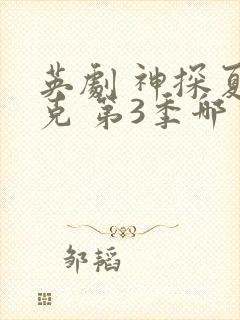 英劇 神探夏
克 第3季 哪
邹韬